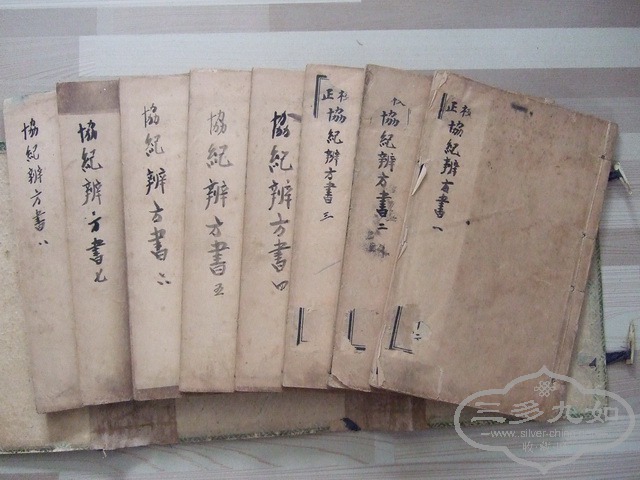 校正
協紀辨方書一
協紀辨方書二
校正
協紀辨方書三
協紀辨方書四
協紀辨方書五
協紀辨方書六
協紀辨方書
協紀辨方書八
三多九如